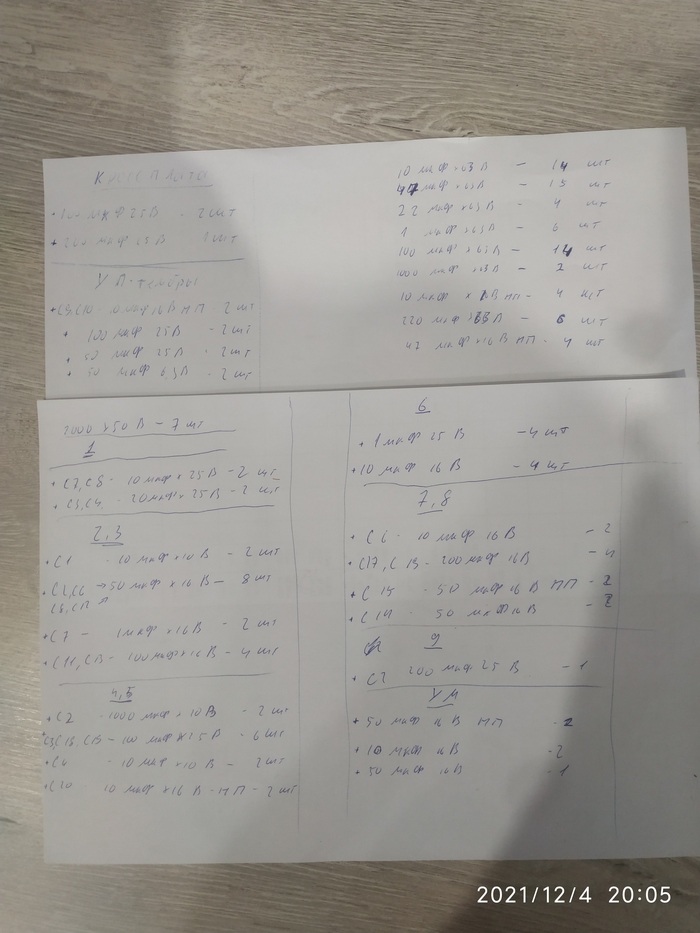 + 100 мкф 25В - 2 шт
+ 200 мкф 25 В 1 шт
УП-тембры
+ С9,С10 - 10 мкф 16В НП - 2 шт
+ 100 мкф 25В - 2 шт
+ 50 мкф 25В - 2 шт
+ 50 мкф 63В - 2 шт
10 мкф × 63 В - 14 шт
47 мкф × 63В - 13 шт
22 мкф × 63 В - 4 шт
1 мкф × 63В - 6 шт
100 мкф × 63 В - 14 шт
1000 мкф × 63В - 2 шт
10 мкф × 16В НП - 4 шт
220 мкф × 63В - 6 шт
47 мкф × 16 В НП - 4 шт
2000 × 50 В - 7 шт
1
+ С7,С8 - 10 мкф × 25 В - 2 шт
+ С3,С4, - 20 мкф × 25 В - 2 шт
2,3
+ С1 - 10 мкф × 10 В - 2 шт
→ 50 мкф × 16 В - 8 шт
+ С7 - 1 мкф × 16 В - 2 шт
- 100 мкф × 16 В - 4 шт
4,5
+ С2 - 1000 мкф × 10 В - 2 шт
- 100 мкф × 25 В - 6 шт
- 10 мкф × 10 В - 2 шт
+ С20 10 мкф × 16 В - НП - 2 шт
6
+ 1 мкф 25 В - 4 шт
+ 10 мкф 16 В - 4 шт
7,8
+ С6 - 10 мкф 16 В - 2
- 200 мкф 16В
- 50 мкф 16 В НП - 2
- 50 мкф 16 В - 2
9
+ С2 200 мкф 25 В - 1
УМ
+ 50 мкф 16 В НП - 2
+ 10 мкф 16 В - 2
+ 50 мкф 16 В - 1
2021/12/4 20:05